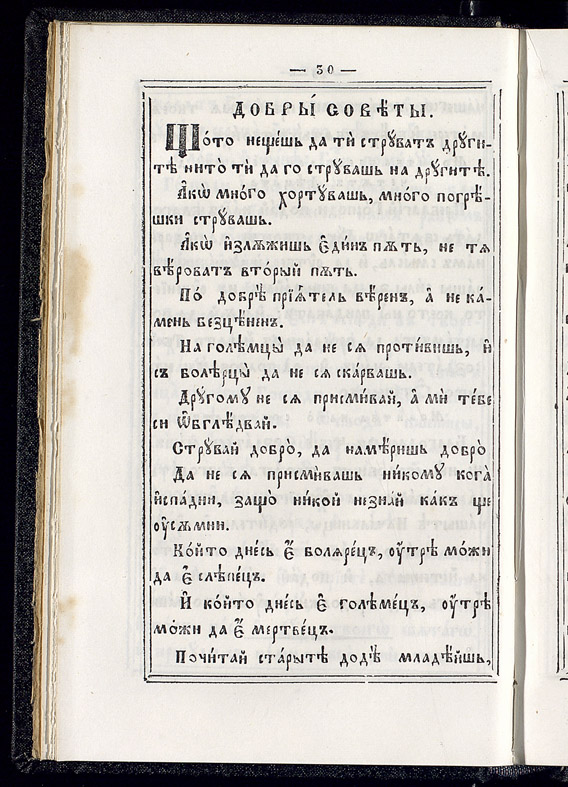 — 30 —
ДОБРЫ́ СОВѢ́ТЫ.
Що́то не́щешь да тѝ струватъ дру́ги-
тѣ нито̀ тѝ да го струвашь на дру́гитѣ.
А҆́кѡ мно́го хортувашь, мно́го погрѣ́-
шки струвашь.
А҆́кѡ и҆злѫ́жишь є҆ди́нъ пѫ́ть, не тѧ
вѣ́роватъ вторый пѫ́ть.
По̀ добрѣ̀ прїѧ́тель вѣ́ренъ, а҆̀ не ка́-
мень безцѣ́ненъ.
На голѣ́мцы да не сѧ проти́вишь, и҆̀
съ болѣрцы̀ да не сѧ ска́рвашь.
Дру́гому не сѧ присми́вай, а҆̀ мѝ те́бе
си ѡ҆бглѣ́двай.
Стру́вай добро̀, да намѣ́ришь добро̀
Да не сѧ присми́вашь ни́кому кога̀
и҆спа́дни, защо̀ ни́кой незна́й какъ ще
ᲂу҆сѧ́мни.
Ко́йто дне́сь є҆̀ боляре́цъ, ᲂу҆́трѣ мо́жи
да є҆̀ слѣпе́цъ.
И҆̀ ко́йто дне́сь є҆̀ голѣме́цъ, ᲂу҆́трѣ
мо́жи да є҆̀ мертье́цъ.
Почи́тай ста́рытѣ додѣ̀ младѣ́йшь,